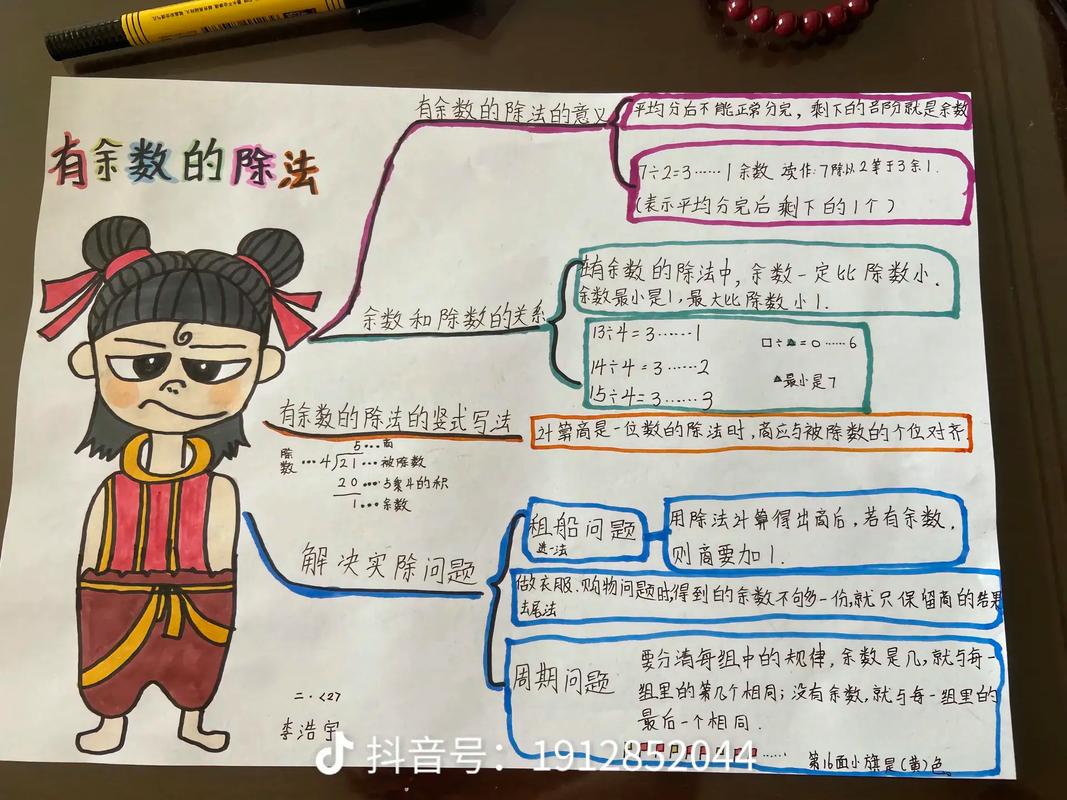 有余数的除法
有余数的除法的意义
平均分后不能正常分完，剩下的部分就是余数
7÷2=3……1余数 读作:7除以2等于3余1.
(表示平均分完后剩下的1个)
余数和除数的关系
有余数的除法中，余数一定比除数小.
余数最小是1，最大比除数小1.
13÷4=3……1
□÷▲=0……6
14÷4=3……2
▲最小是7
15÷4=3……3
有余数的除法的竖式写法
计算商是一位数的除法时，商应与被除数的个位对齐.
5…商
除数…4 21…被除数
20…5与4的积
1…余数
解决实除问题
租船问题
进一法
用除法计算得出商后，若有余数，
则商要加1.
做衣服.购物问题时得到的余数不够一份，就只保留商的结果
去尾法
周期问题
要分清每组中的规律，余数是几，就与每一
组里的第几个相同；没有余数，就与每一组里的
最后一个相同.
第16面小旗是(黄)色。
二·<27
李浩宇
抖音号：1912852044